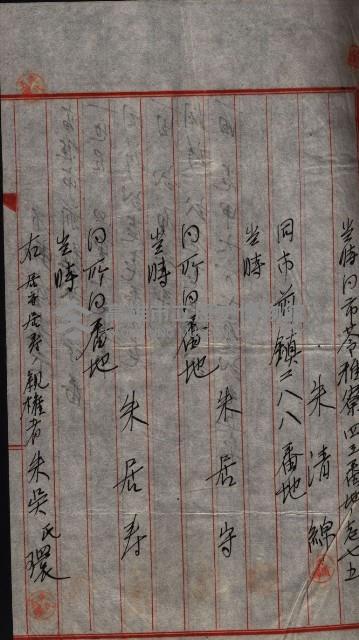 当時同市苓雅寮四三番地ノ七五
朱清綿
同市前鎮二八八番地
当時
朱居守
同所同番地
当時
朱居寿
同所同番地
当時
右居守居寿親権者朱吳氏環